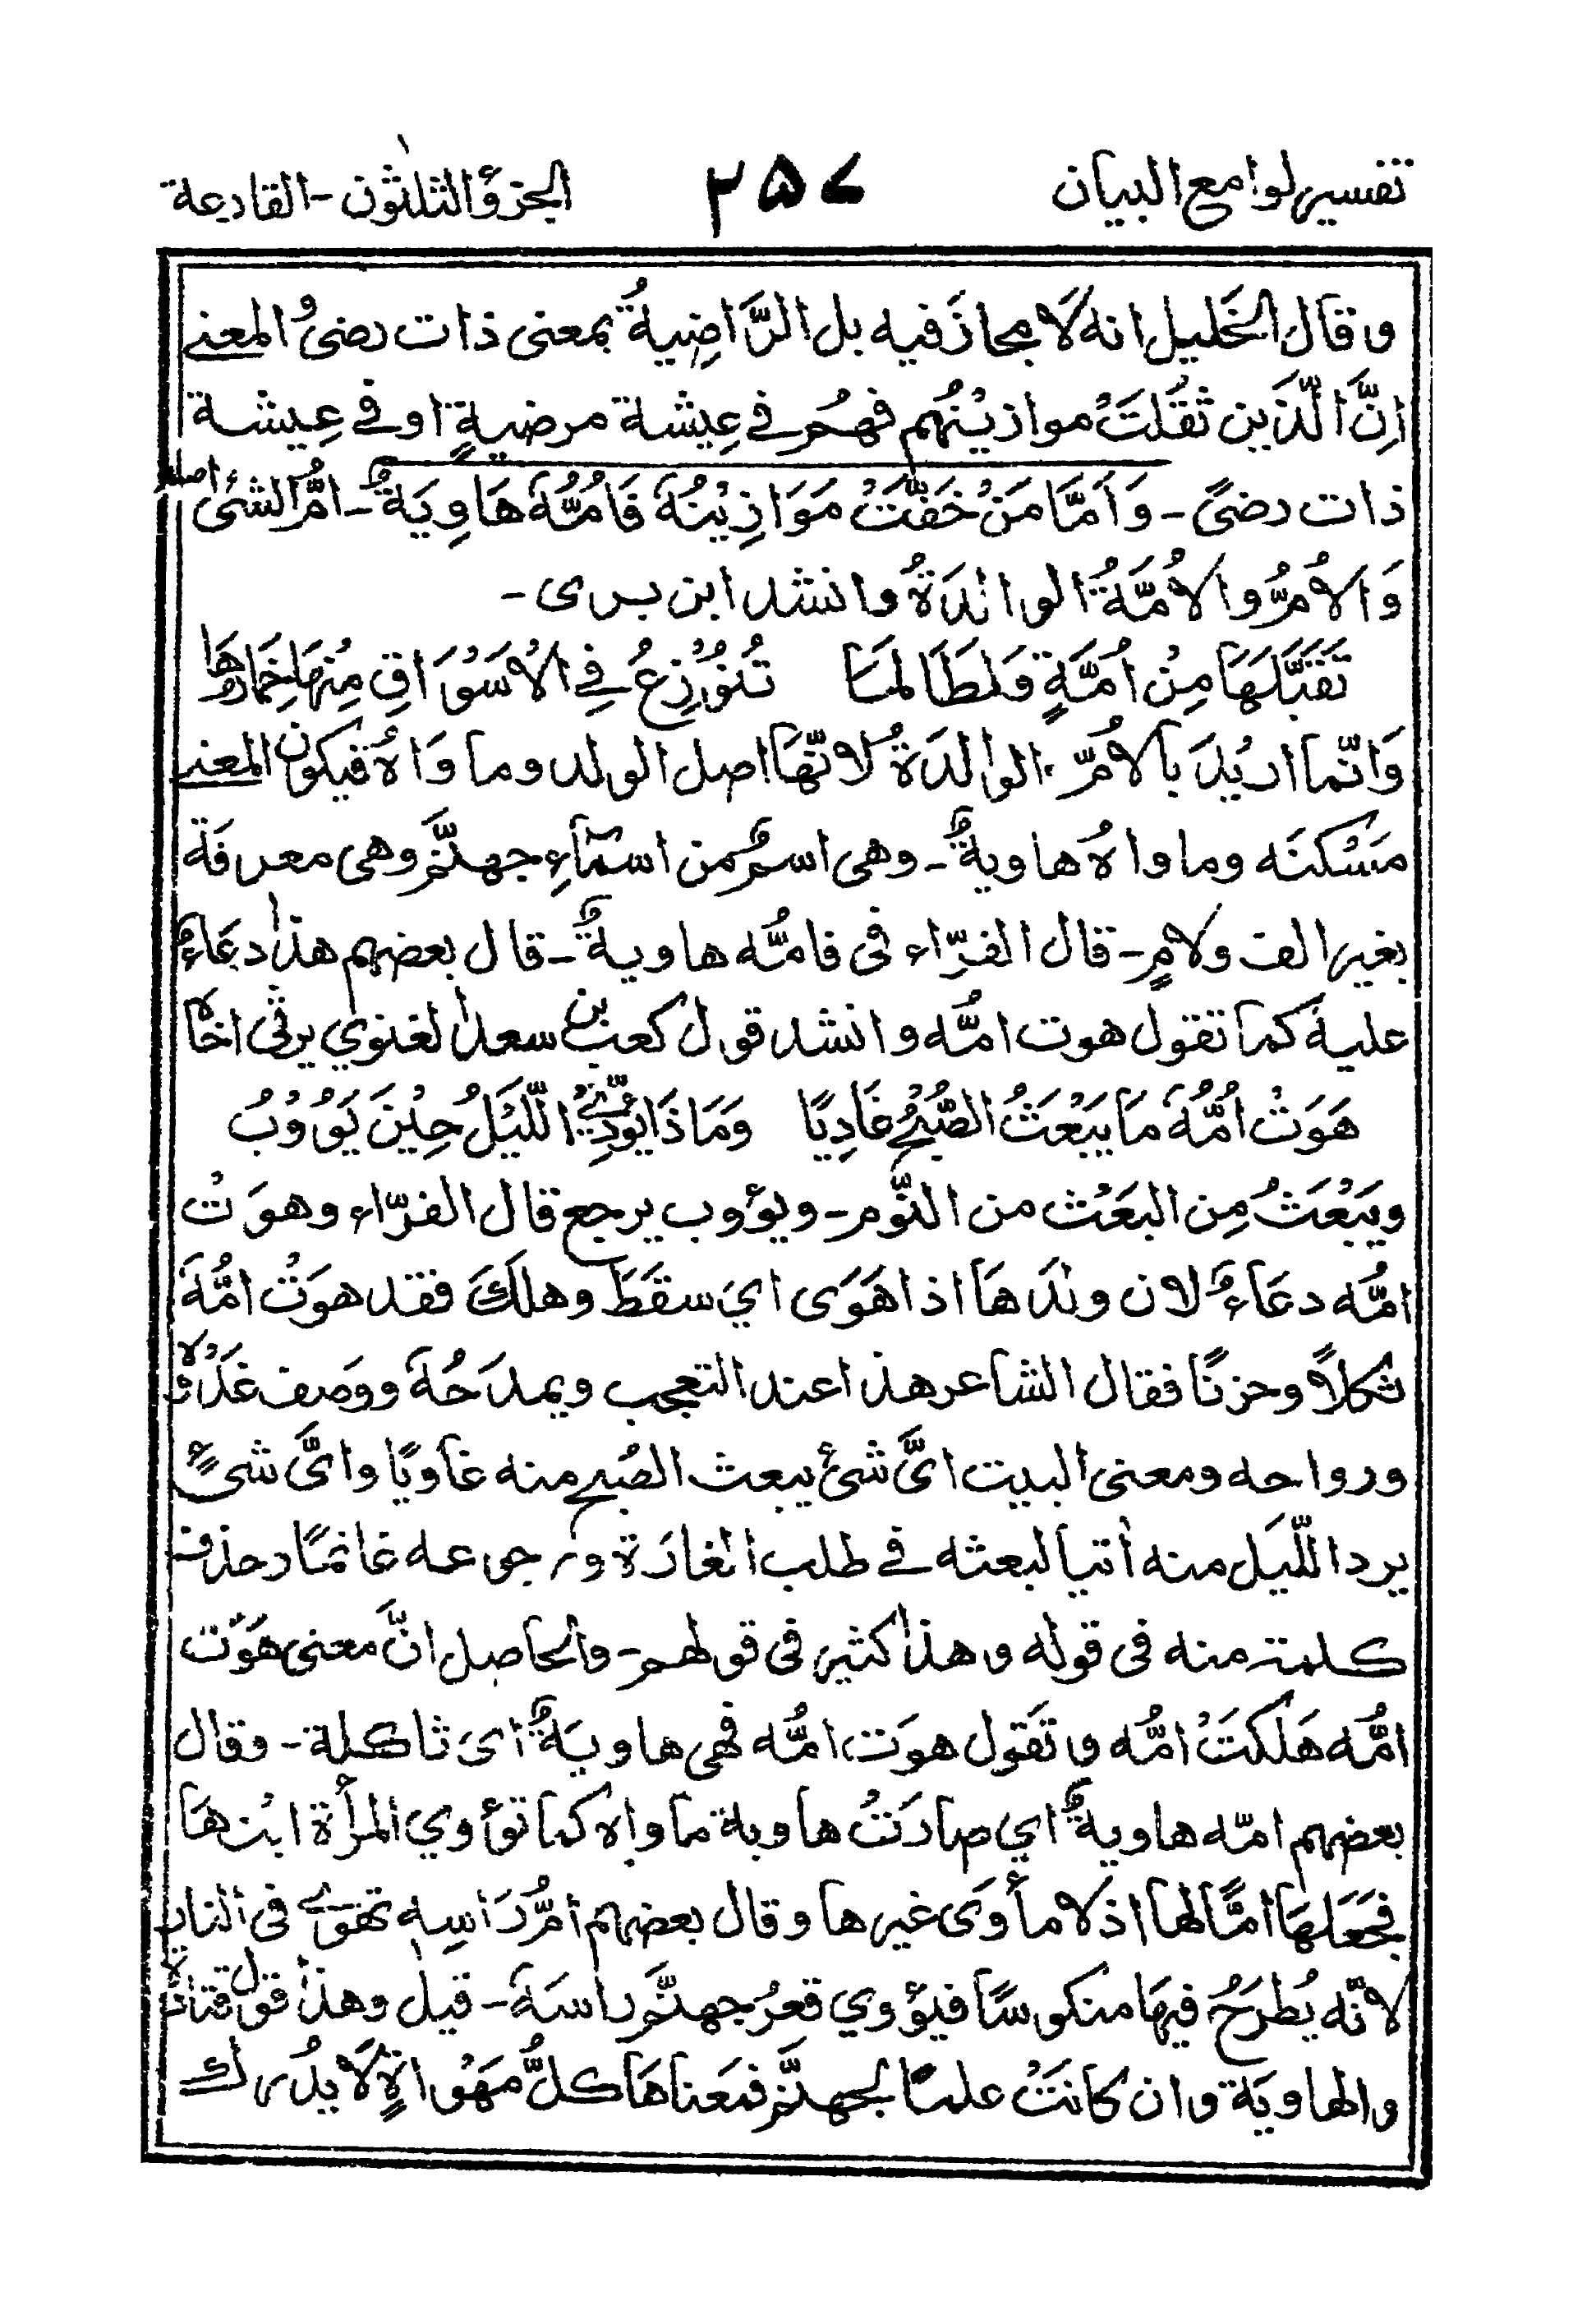 تفسير لوامع البيان ٢٥٧ الجزؤ الثلثون - القارعة
وقال الخَليل انه لَا مجازَ فيه بل الرَّاضِيةُ بمعنى ذات رضىً المعنے
اِنَّ الّذَين ثقُلَتْ موازيْنُهم فهُم فے عِيشة مرضيةٍ او فے عِيشة
ذات رضىً - وَاَمَّا مَنْ خَفَّتْ مَوَازِيْنُهٗ فَاُمُّهٗ هَاوِيَةٌ - امُّ الشئ اصله
وَالاُمُّ والاُمَّةُ الوالدَةُ وانشد ابن برى -
تَقَبَّلَهَا مِنْ اُمَّةٍ وَلَطَالَمَا تُنُوْزِعُ فِے الْاَسْوَاقِ مِنْهَا خِمَارُهَا
وَانّما اريْدَ بالاُمّ الوالدَةُ لانّهَا اصل الولد وماوَاهُ فيكون المعنے
مَسْكنَه وماواهُ هاويةٌ - وهى اسمٌ من اسمآءِ جهنَّم وهى معرفَة
بغير الف ولامٍ - قال الفرّاء فى فامُّه هاويةٌ - قال بعضهم هذا دعَاءٌ
عليهَ كما تقول هوت امُّه وانشد قول كعب بن سعد الغنوي يرثى اخاه
هَوَتْ اُمُّهٗ مَا يَبْعَثُ الصُّبْحُ غَادِيًا وَمَاذَا يُؤَدِّيْ الَّليْلُ حِيْنَ يَؤُوْبُ
ويَبْعَثُ مِن البَعْث من النّوم - ويؤوب يرجع قال الفرّاء وهوَتْ
امُّه دعَاءٌ لان ولدَهَا اذا هَوَى اي سقَطَ وهلَكَ فقد هوَتْ امُّهٗ
ثكلاً وحزنًا فقال الشاعر هذا عند التعجب ويمدَحُهٗ ووَصف غَدْوَه
ورواحه ومعنى البيت اىَّ شئ يبعث الصُبح منه غاويًا واىَّ شىءٍ
يرد اللّيَل منه اٰتيا لبعثه فے طلب الغارَة ورجوعه غانمًا وحذف
كلمة منه فى قوله وهذا كثير فى قولهم - والحاصل انَّ معنى هوَت
امُّه هَلكَتْ امُّه وتَقول هوَت امُّه فهى هاويَةٌ اى ثاكلة - وقال
بعضهم امّه هاويةٌ اي صارَتْ هاوية ماواه كما تؤوي المرأة ابْنهَا
فجَعَلهَا امًّا لها اذلا مأوَى غيرها وقال بعضهم امُّ رَاسِه تهوے فى النار
لانّه يُطرَحُ فيهَا منكوسًا فيؤوي قعرُ جهنَّم راسَهٗ - قيل وهذا قول قتادة
والهاويَة وان كانَتْ علمًا لجهنَّم فمَعناهَا كلُّ مَهْوَاةٍ لَا يدْرك